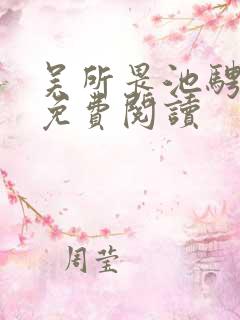 吴所畏池騁
免費閱讀
周莹